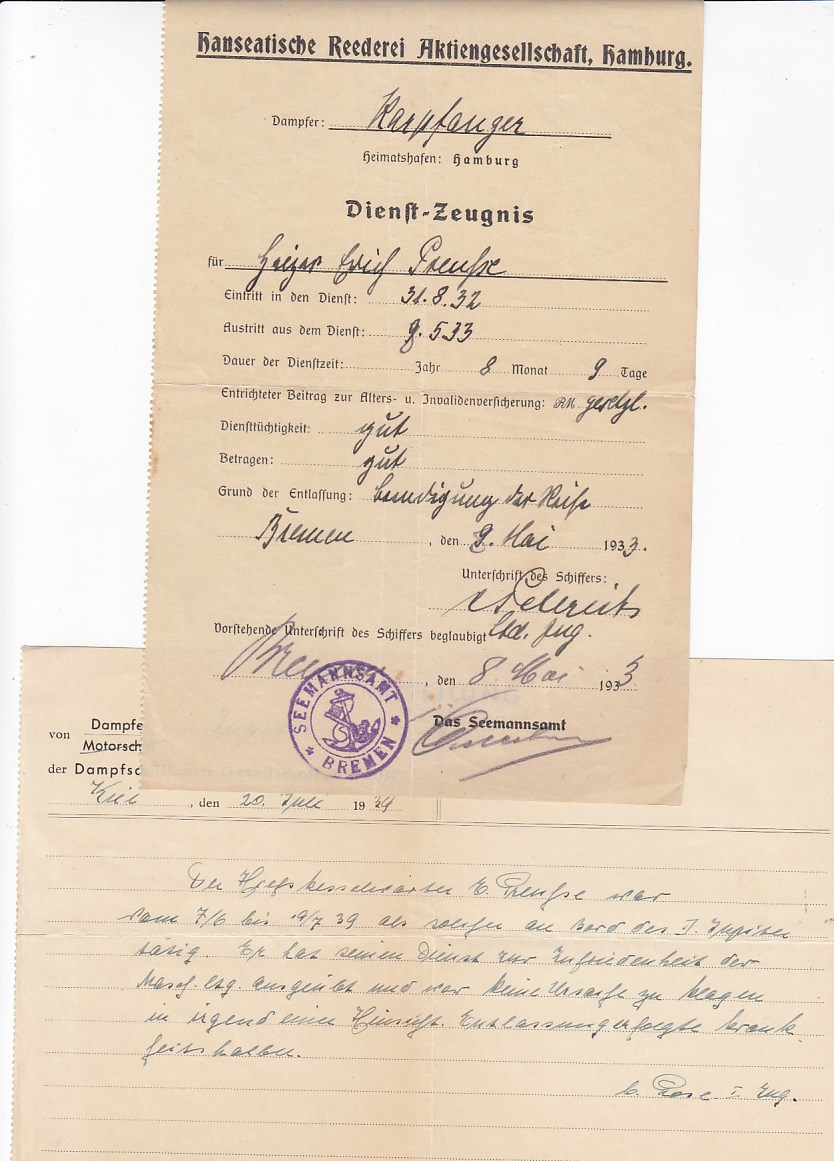 Hanseatische Reederei Aktiengesellschaft, Hamburg.
Dampfer: Karpfanger
Heimatshafen: Hamburg
Dienst-Zeugnis
für Heizer Erich Preuße
Eintritt in den Dienst: 31.8.32
Austritt aus dem Dienst: 9.5.33
Dauer der Dienstzeit: Jahr 8 Monat 9 Tage
Entrichteter Beitrag zur Alters- u. Invalidenversicherung: RM gesetzl.
Diensttüchtigkeit: gut
Betragen: gut
Grund der Entlassung: Beendigung der Reise
Bremen, den 9. Mai 1933.
Unterschrift des Schiffers:
Ltd. Ing.
Vorstehende Unterschrift des Schiffers beglaubigt
Bremen, den 8 Mai 1933
SEEMANNSAMT BREMEN
Das Seemannsamt
von Dampfe
Motorsch
der Dampfsc
Kiel, den 20. Juli 1939
Der Hilfskesselwärter E. Preuße war
vom 7/6 bis 19/7 39 als solcher an Bord des D. Jupiter
tätig. Er hat seinen Dienst zur Zufriedenheit der
Masch. Ltg. ausgeübt und war keine Ursache zu klagen
in irgend einer Hinsicht. Entlassung erfolgte krank
heitshalber.
I. Ing.